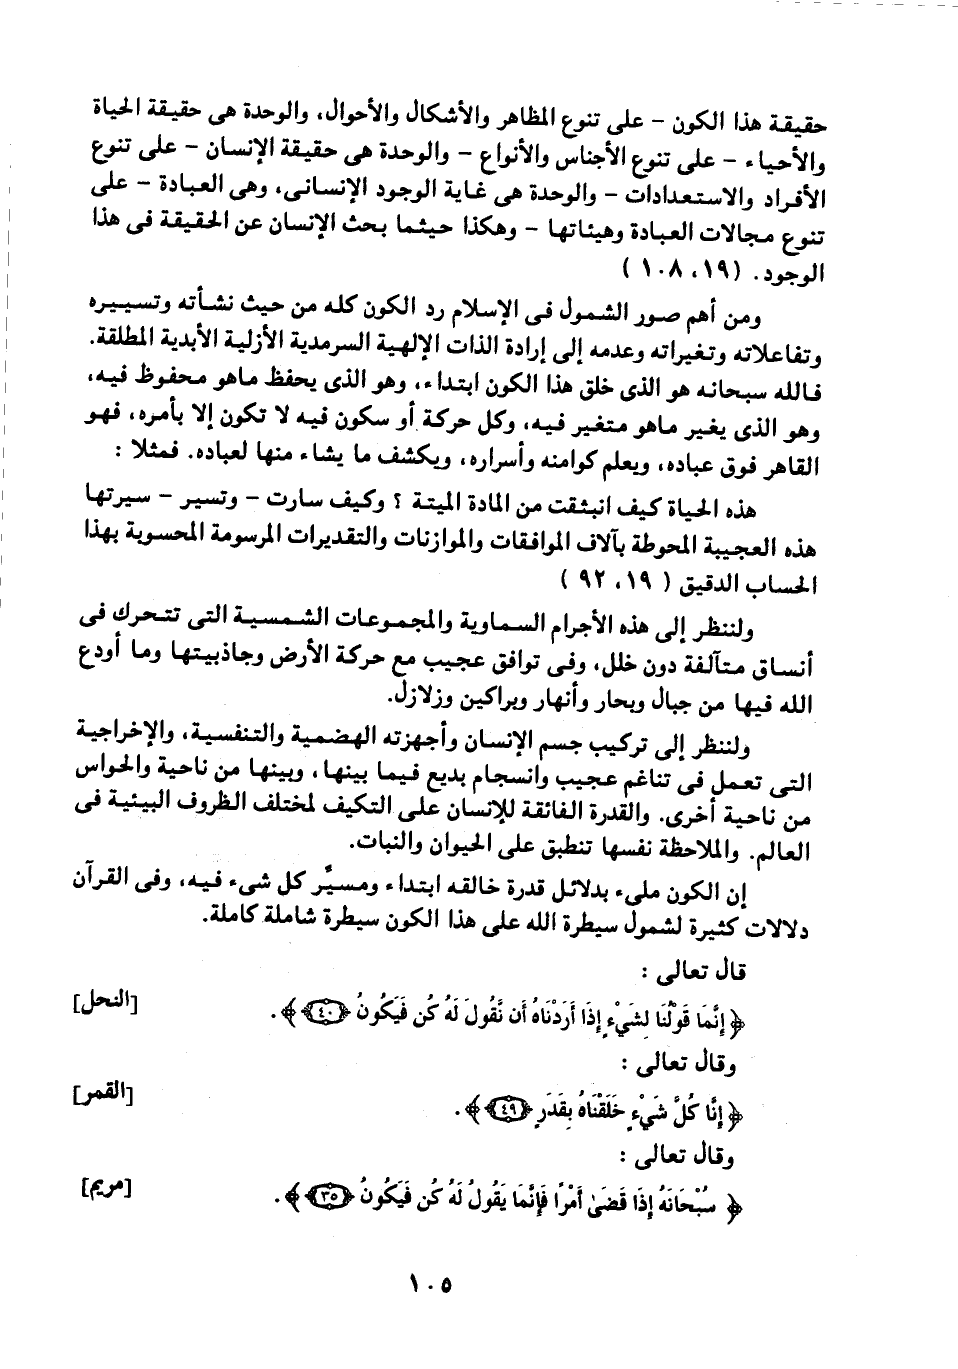 حقيقة هذا الكون – على تنوع المظاهر والأشكال والأحوال، والوحدة هى حقيقة الحياة
والأحياء – على تنوع الأجناس والأنواع – والوحدة هى حقيقة الإنسان – على تنوع
الأفراد والاستعدادات – والوحدة هى غاية الوجود الإنسانى، وهى العبادة – على
تنوع مجالات العبادة وهيئاتها – وهكذا حيثما بحث الإنسان عن الحقيقة فى هذا
الوجود. (١٩، ١٠٨ )
ومن أهم صور الشمول فى الإسلام رد الكون كله من حيث نشأته وتسييره
وتفاعلاته وتغيراته وعدمه إلى إرادة الذات الإلهية السرمدية الأزلية الأبدية المطلقة.
فالله سبحانه هو الذى خلق هذا الكون ابتداء، وهو الذى يحفظ ماهو محفوظ فيه،
وهو الذى يغير ماهو متغير فيه، وكل حركة أو سكون فيه لا تكون إلا بأمره، فهو
القاهر فوق عباده، ويعلم كوامنه وأسراره، ويكشف ما يشاء منها لعباده. فمثلا :
هذه الحياة كيف انبثقت من المادة الميتة ؟ وكيف سارت – وتسير – سيرتها
هذه العجيبة المحوطة بآلاف الموافقات والموازنات والتقديرات المرسومة المحسوبة بهذا
الحساب الدقيق ( ١٩، ٩٢ )
ولننظر إلى هذه الأجرام السماوية والمجموعات الشمسية التى تتحرك فى
أنساق متآلفة دون خلل، وفى توافق عجيب مع حركة الأرض وجاذبيتها وما أودع
الله فيها من جبال وبحار وأنهار وبراكين وزلازل.
ولننظر إلى تركيب جسم الإنسان وأجهزته الهضمية والتنفسية، والإخراجية
التى تعمل فى تناغم عجيب وانسجام بديع فيما بينها، وبينها من ناحية والحواس
من ناحية أخرى. والقدرة الفائقة للإنسان على التكيف لمختلف الظروف البيئية فى
العالم. والملاحظة نفسها تنطبق على الحيوان والنبات.
إن الكون ملىء بدلائل قدرة خالقه ابتداء ومسيِّر كل شىء فيه، وفى القرآن
دلالات كثيرة لشمول سيطرة الله على هذا الكون سيطرة شاملة كاملة.
قال تعالى :
﴿ إِنَّمَا قَوْلُنَا لِشَيْءٍ إِذَا أَرَدْنَاهُ أَن نَّقُولَ لَهُ كُن فَيَكُونُ ﴿٤٠﴾ ﴾. [النحل]
وقال تعالى :
﴿ إِنَّا كُلَّ شَيْءٍ خَلَقْنَاهُ بِقَدَرٍ ﴿٤٩﴾ ﴾. [القمر]
وقال تعالى :
﴿ سُبْحَانَهُ إِذَا قَضَىٰ أَمْرًا فَإِنَّمَا يَقُولُ لَهُ كُن فَيَكُونُ ﴿٣٥﴾ ﴾. [مريم]
١٠٥